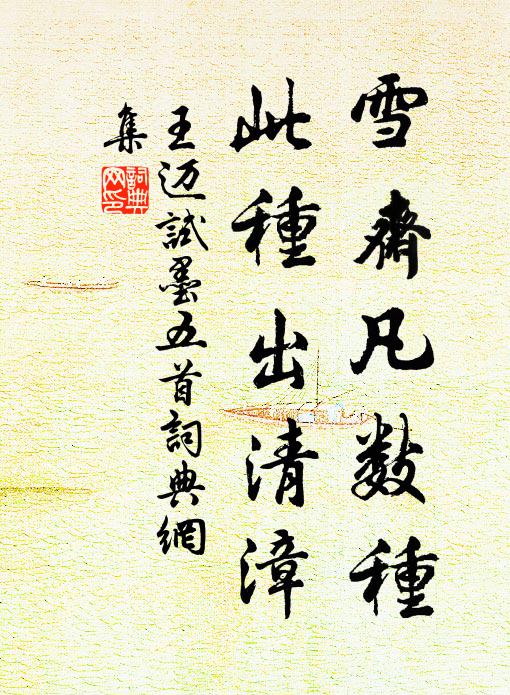 雪齋凡数種
此種出清漳
王迈試墨五首詞典網
集
詞典
网印